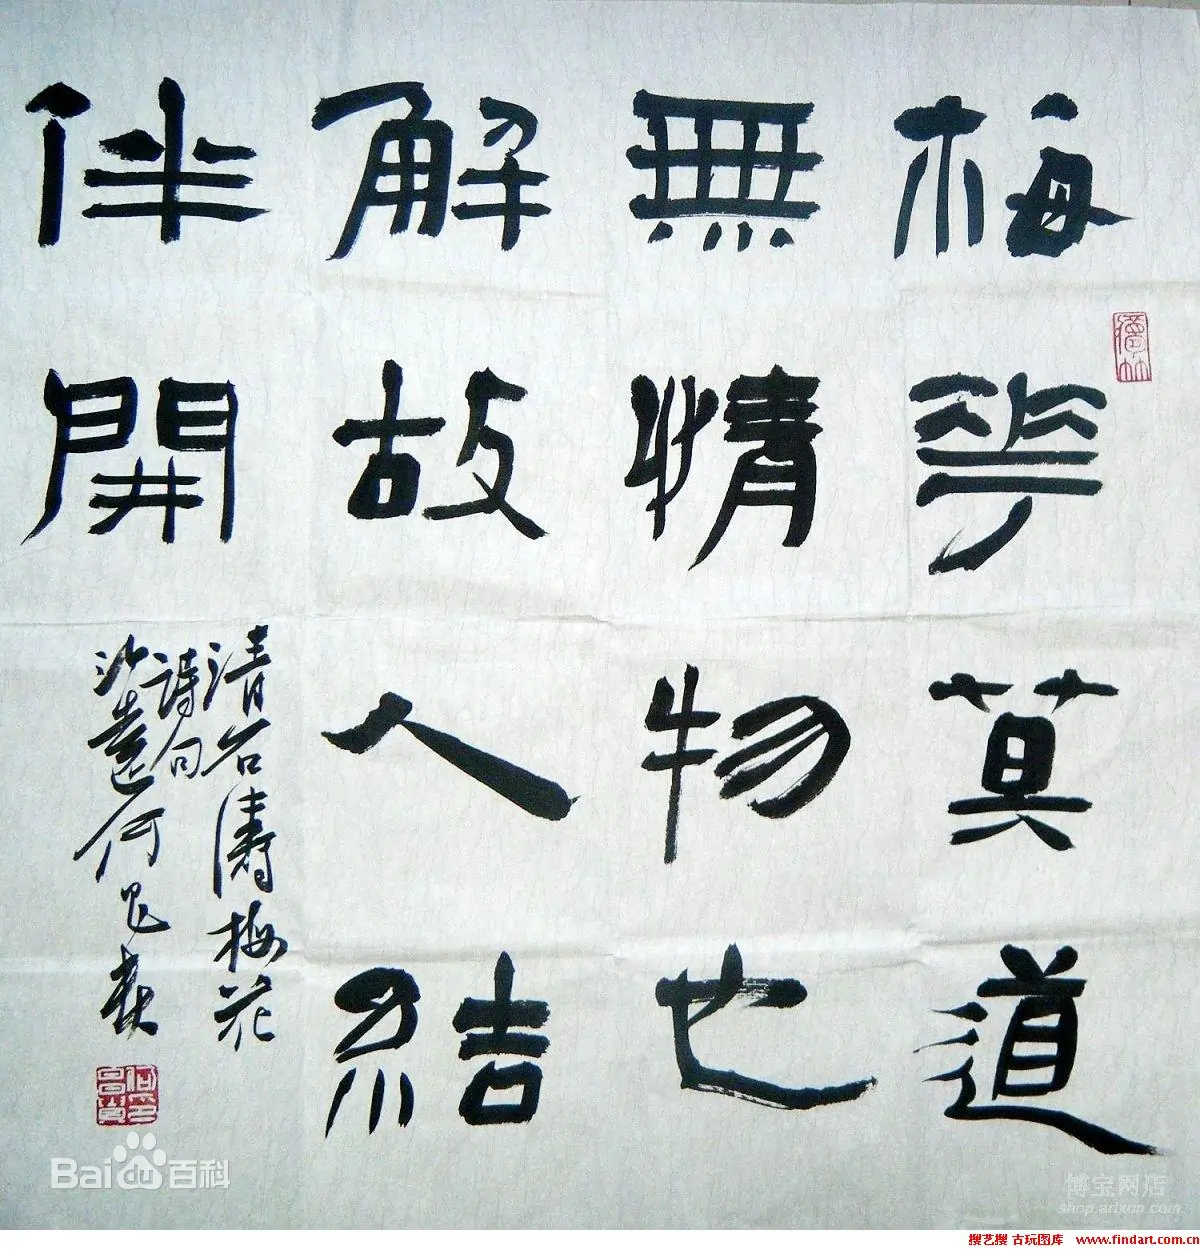 梅花莫道
無情物也
解故人結
伴開
清石濤梅花
詩句
何
Bai百科
博宝网店
shop.artxun.com
搜艺搜 古玩图库 www.findart.com.cn